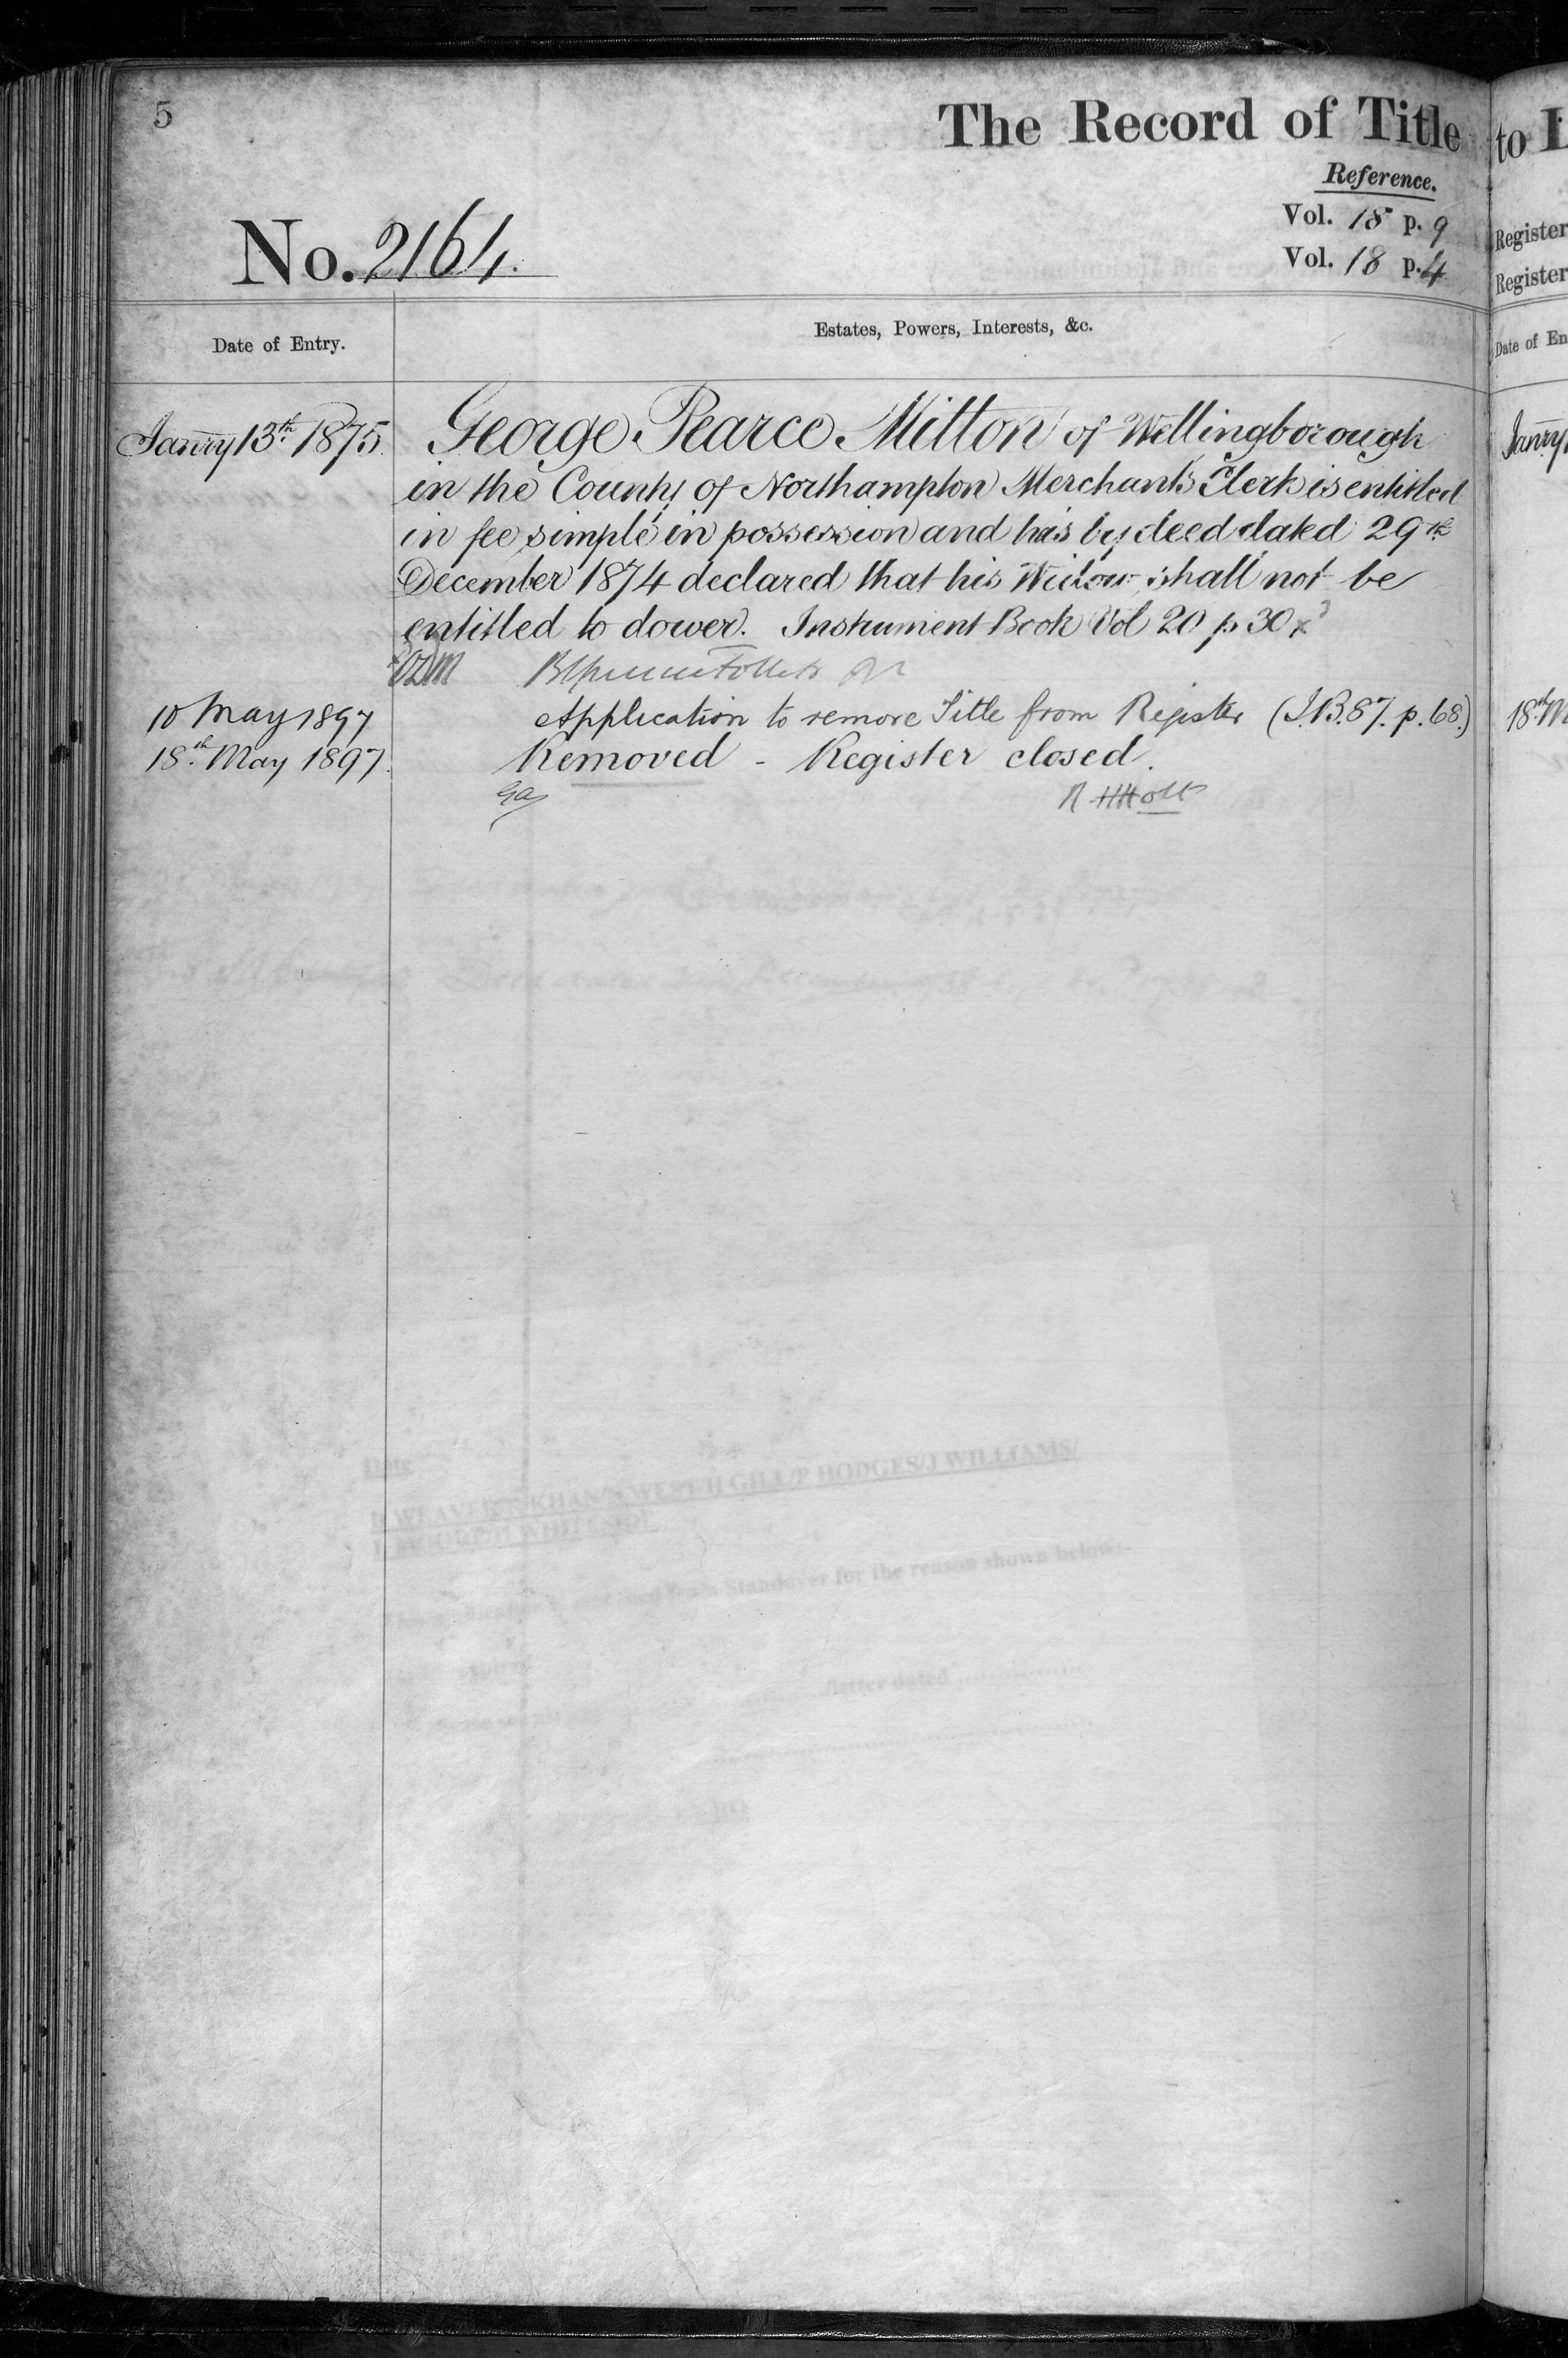 5
The Record of Title
to L
Reference.
Vol. 18 p. 9
Register
No. 2164.
Vol. 18 p. 4
Register
Date of Entry.
Estates, Powers, Interests, &c.
Date of En
Janry 13th 1875
George Pearce Milton of Wellingborough
Janry
in the County of Northampton Merchant's Clerk is entitled
in fee simple in possession and has by deed dated 29th
December 1874 declared that his Widow shall not be
entitled to dower. Instrument Book Vol 20 p. 30
10 May 1897
Application to remove Title from Register (I.B. 87. p. 68.)
18th M
18th May 1897.
Removed - Register closed.
R H Holt
GILL/P HODGES/J WILLIAMS/
Standover for the reason shown below:-
letter dated